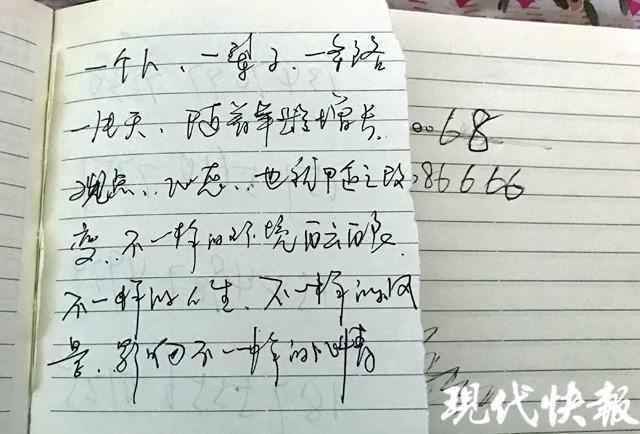 一个人、一辈子、一条路
一片天，随着年龄增长
观点、心态、也随之改
68
86666
变、不一样的环境
不一样的人生、不一样的风
景、影响不一样的心情
现代快报